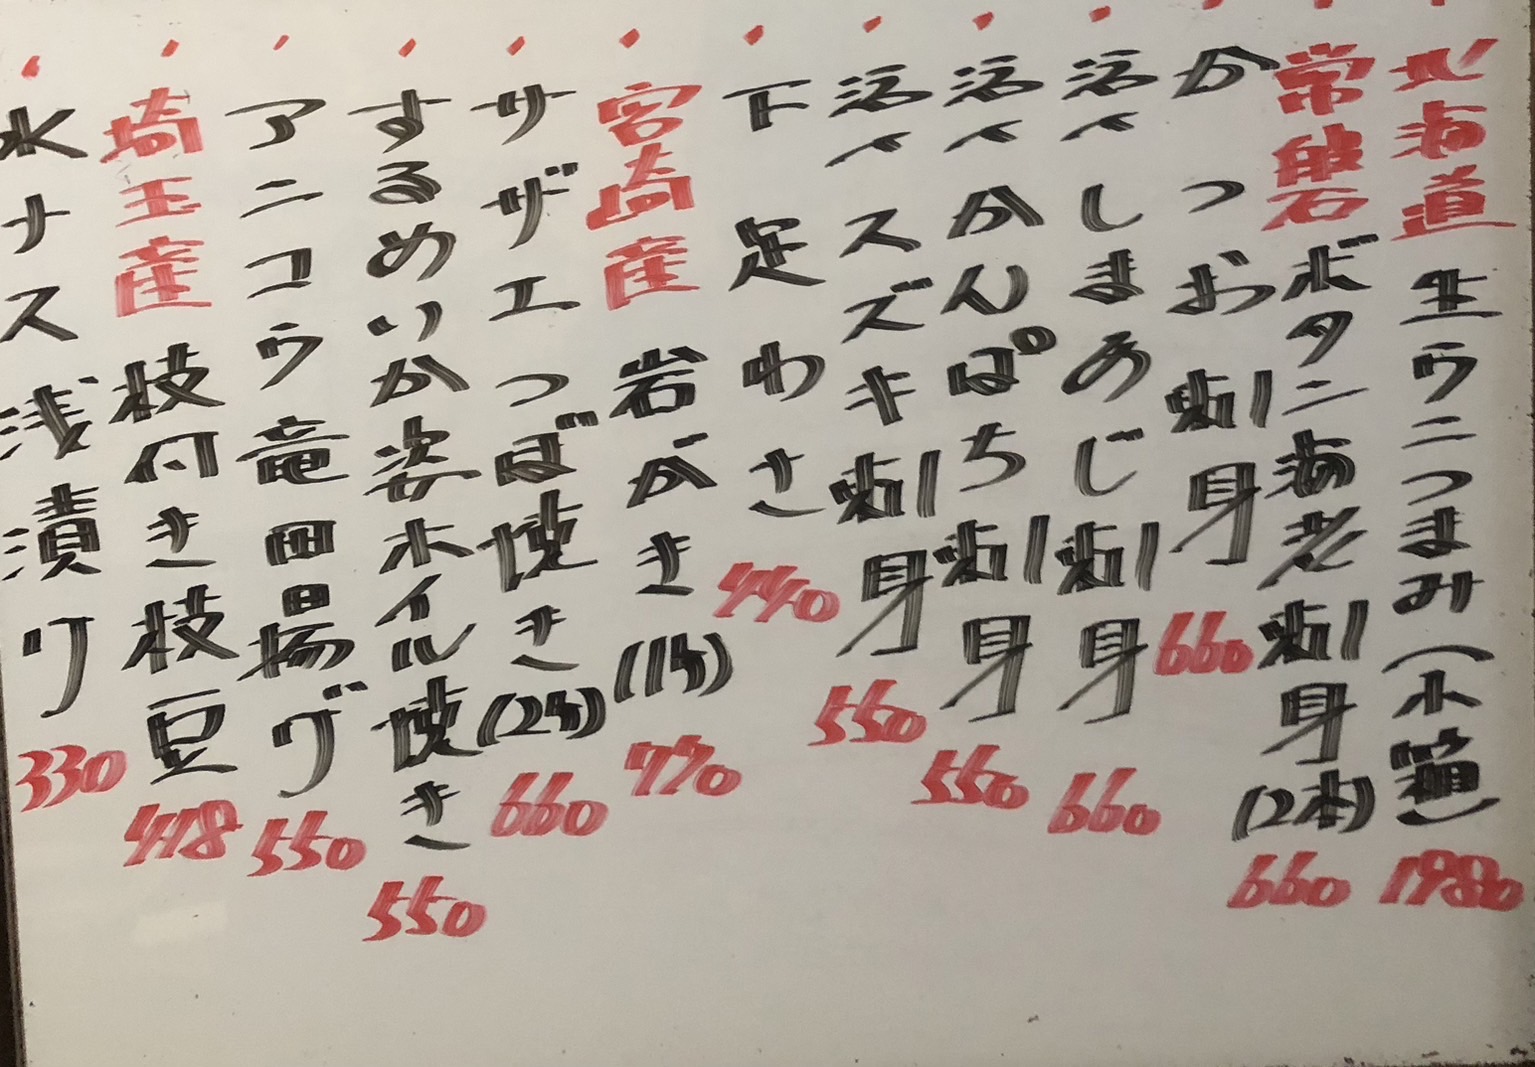 北海道生ウニつまみ(小箱)1980
常磐ボタン海老刺身(2本)660
かつお刺身660
活〆しまあじ刺身660
活〆かんぱち刺身550
活〆スズキ刺身550
下足わさ440
宮崎産岩がき(1ケ)770
サザエつぼ焼き(2ケ)660
するめいか姿ホイル焼き550
アンコウ竜田揚げ550
埼玉産枝付き枝豆418
水ナス浅漬り330